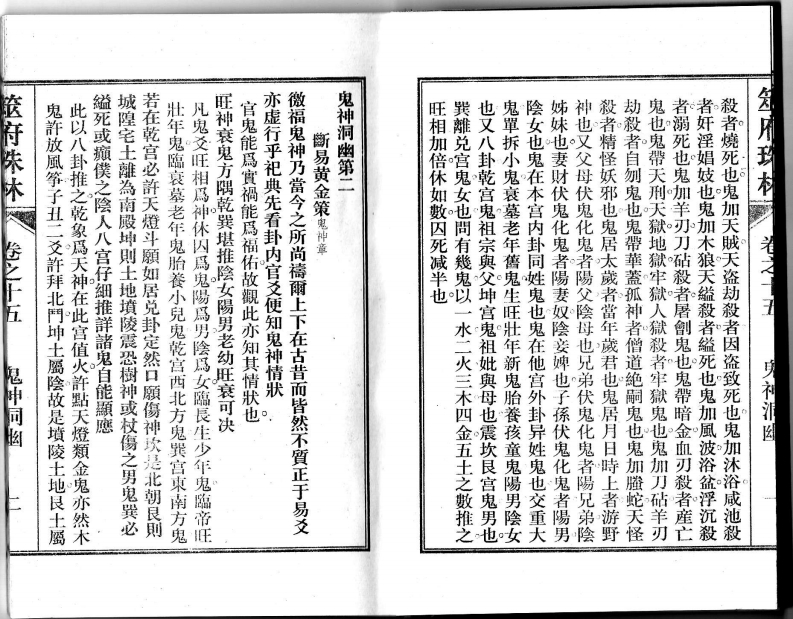 筮府珠林
卷之十五
鬼神洞幽
一
殺者燒死也鬼加天賊天盗劫殺者因盗致死也鬼加沐浴咸池殺
者奸淫娼妓也鬼加木狼天縊殺者縊死也鬼加風波浴盆浮沉殺
者溺死也鬼加羊刃刀砧殺者屠劊鬼也鬼帶暗金血刃殺者産亡
鬼也鬼帶天刑天獄地獄牢獄人獄殺者牢獄鬼也鬼加刀砧羊刃
劫殺者自刎鬼也鬼帶華蓋孤神者僧道絶嗣鬼也鬼加螣蛇天怪
殺者精怪妖邪也鬼居太歲者當年歲君也鬼居月日時上者游野
神也又父母伏鬼化鬼者陽父陰母也兄弟伏鬼化鬼者陽兄弟陰
姊妹也妻財伏鬼化鬼者陽妻奴陰妾婢也子孫伏鬼化鬼者陽男
陰女也鬼在本宫内卦同姓鬼也鬼在他宫外卦异姓鬼也交重大
鬼單拆小鬼衰墓老年舊鬼生旺壯年新鬼胎養孩童鬼陽男陰女
也又八卦乾宫鬼祖宗與父坤宫鬼祖妣與母也震坎艮宫鬼男也
巽離兑宫鬼女也問有幾鬼以一水二火三木四金五土之數推之
旺相加倍休如數囚死减半也
鬼神洞幽第二
斷易黄金策鬼神章
徼福鬼神乃當今之所尚禱爾上下在古昔而皆然不質正于易爻
亦虚行乎祀典先看卦内官爻便知鬼神情狀
官鬼能爲實禍能爲福佑故觀此亦知其情狀也
旺神衰鬼方隅乾巽堪推陰女陽男老幼旺衰可决
凡鬼爻旺相爲神休囚爲鬼陽爲男陰爲女臨長生少年鬼臨帝旺
壯年鬼臨衰墓老年鬼胎養小兒鬼乾宫西北方鬼巽宫東南方鬼
若在乾宫必許天燈斗願如居兑卦定然口願傷神坎是北朝艮則
城隍宅土離為南殿坤則土地墳陵震恐樹神或杖傷之男鬼巽必
縊死或癲僕之陰人八宫仔細推詳諸鬼自能顯應
此以八卦推之乾象爲天神在此宫值火許點天燈類金鬼亦然木
鬼許放風筝子丑二爻許拜北鬥坤土屬陰故是墳陵土地艮土屬
筮府珠林
卷之十五
鬼神洞幽
二